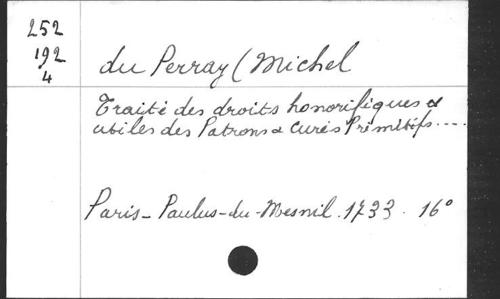 252
192
4
du Perray (Michel
Traité des droits honorifiques &
utiles des Patrons & Curés Primitifs....
Paris - Paulus-du-Mesnil. 1733. 16°